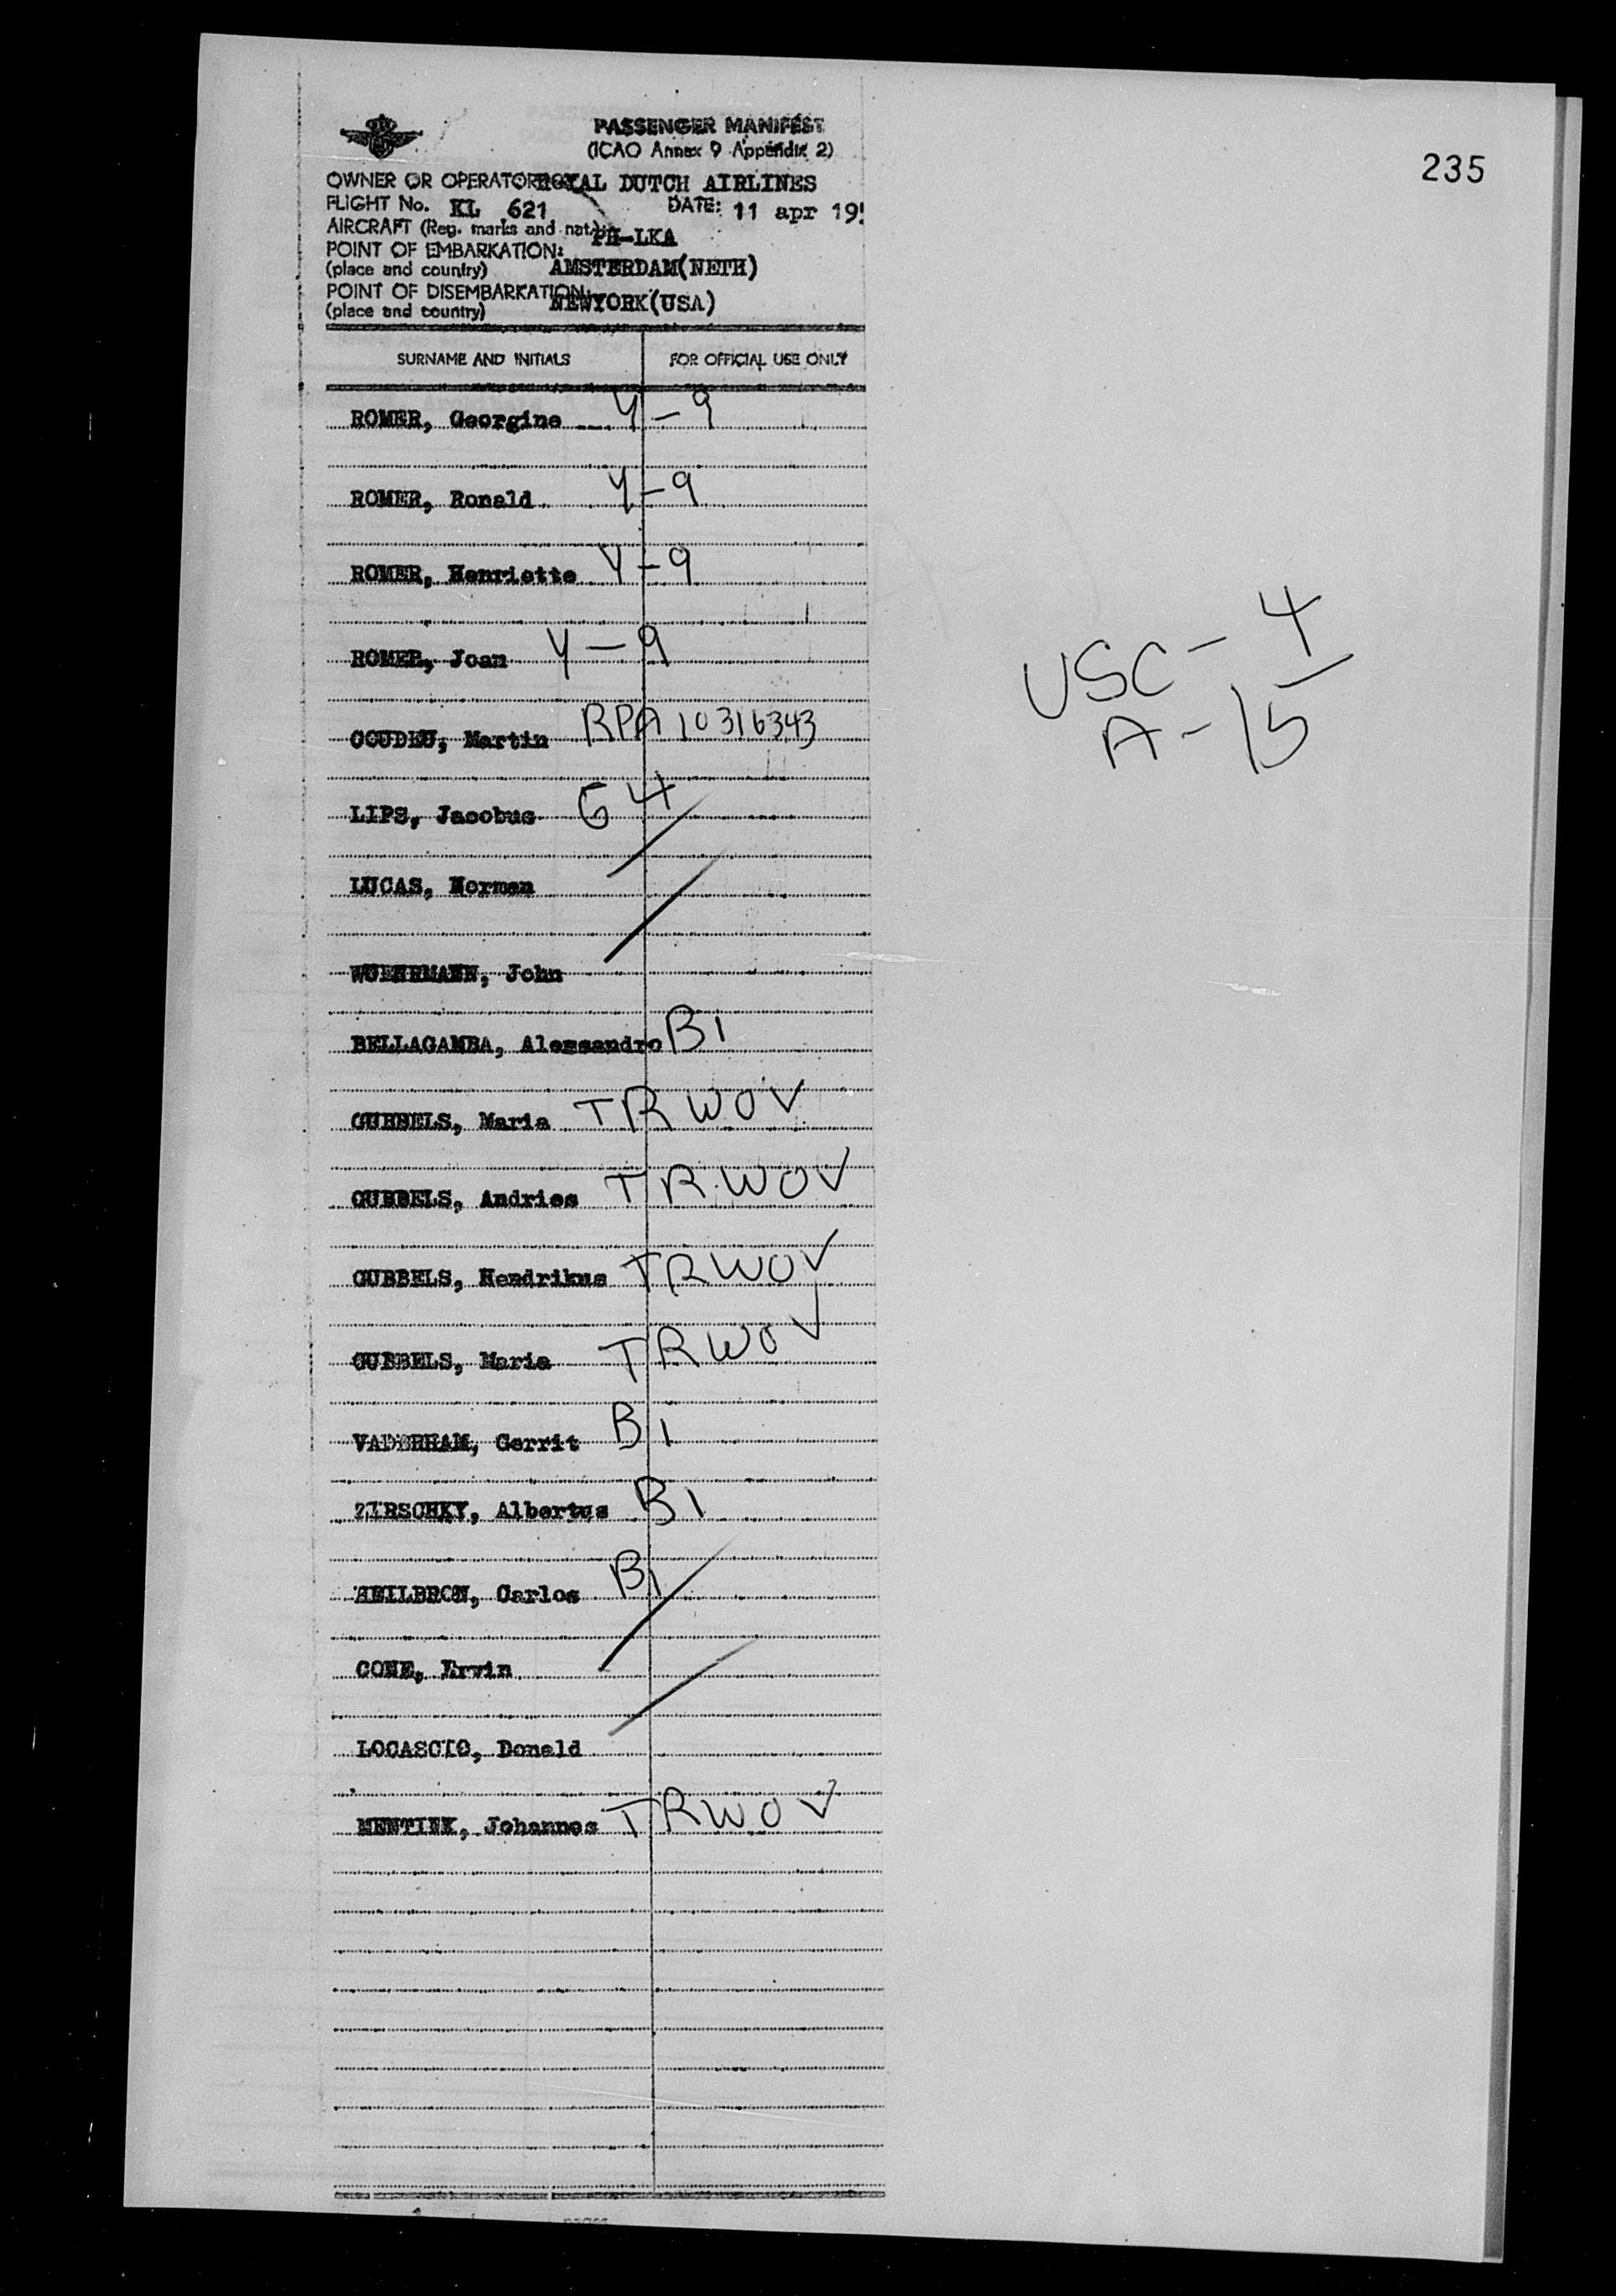 235
PASSENGER MANIFEST
(ICAO Annex 9 Appendix 2)
OWNER OR OPERATOR: ROYAL DUTCH AIRLINES
FLIGHT No. KL 621 DATE: 11 apr 19
AIRCRAFT (Reg. marks and nat.): PH-LKA
POINT OF EMBARKATION:
(place and country) AMSTERDAM(NETH)
POINT OF DISEMBARKATION:
(place and country) NEWYORK(USA)
SURNAME AND INITIALS FOR OFFICIAL USE ONLY
ROMER, Georgine Y-9
ROMER, Ronald Y-9
ROMER, Henriette Y-9
ROMER, Joan Y-9
USC-4
A-15
Martin RPA 10316343
LIPS, Jacobus G4
LUCAS, Norman
John
BELLAGAMBA, Alessandro B1
GUBBELS, Maria TRWOV
GUBBELS, Andries TRWOV
GUBBELS, Hendrikus TRWOV
GUBBELS, Maria TRWOV
VADERHAM, Gerrit B1
ZIRSCHKY, Albertus B1
HEILBRON, Carlos B1
CONE, Ervin
LOCASCIO, Donald
MENTINK, Johannes TRWOV
pages